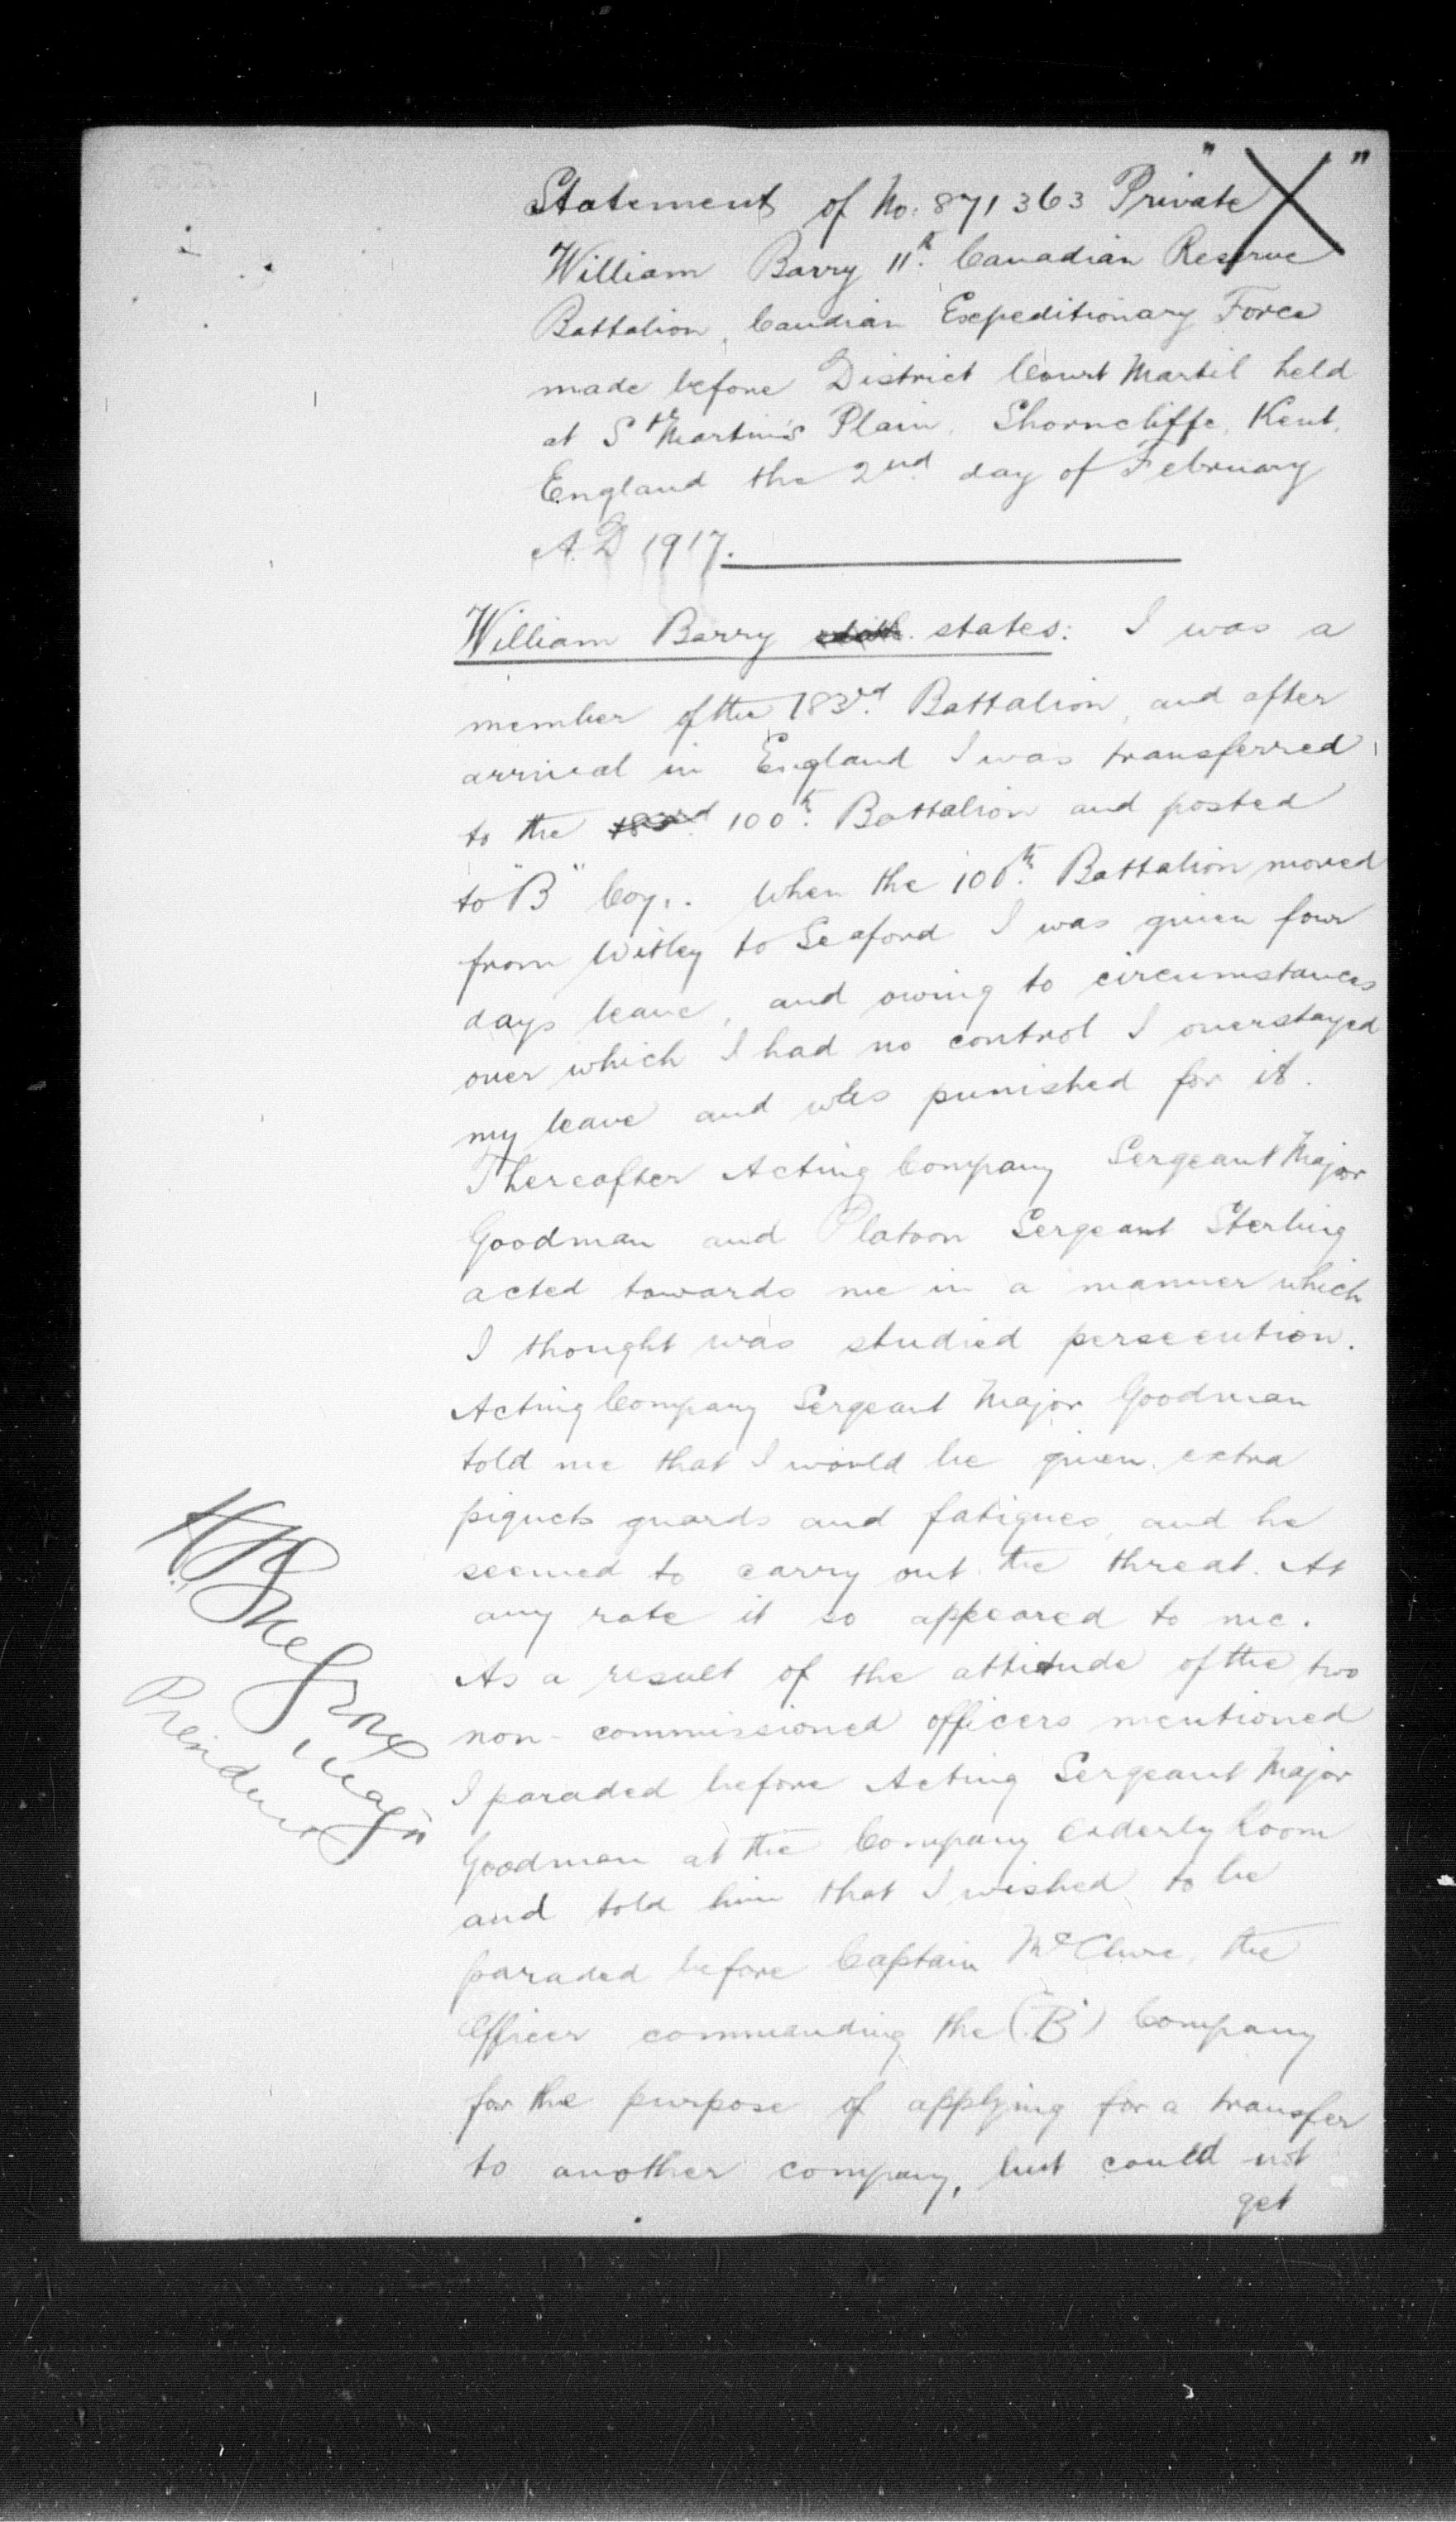 "X"
Statement of No: 871363 Private
William Barry 11th. Canadian Reserve
Battalion, Caudian Expeditionary Force
made before District Court Martil held
at St Martin's Plain, Shorncliffe, Kent,
England the 2nd day of February
A.D 1917.
William Barry states: I was a
member of the 183rd. Battalion, and after
arrival in England I was transferred
to the 183rd. 100th. Battalion and posted
to "B" Coy.. When the 100th. Battalion moved
from Witley to Seaford I was given four
days leave, and owing to circumstances
over which I had no control I overstayed
my leave and was punished for it.
Thereafter Acting Company Sergeant Major
Goodman and Platoon Sergeant Sterling
acted towards me in a manner which
I thought was studied persecution.
Acting Company Sergeant Major Goodman
told me that I would be given extra
piquets guards and fatigues, and he
seemed to carry out the threat. At
any rate it so appeared to me.
As a result of the attitude of the two
non-commissioned officers mentioned
I paraded before Acting Sergeant Major
Goodman at the Company Orderly Room
and told him that I wished to be
paraded before Captain McClure, the
Officer commanding the ("B") Company
for the purpose of applying for a transfer
to another company, but could not
get
Major
President